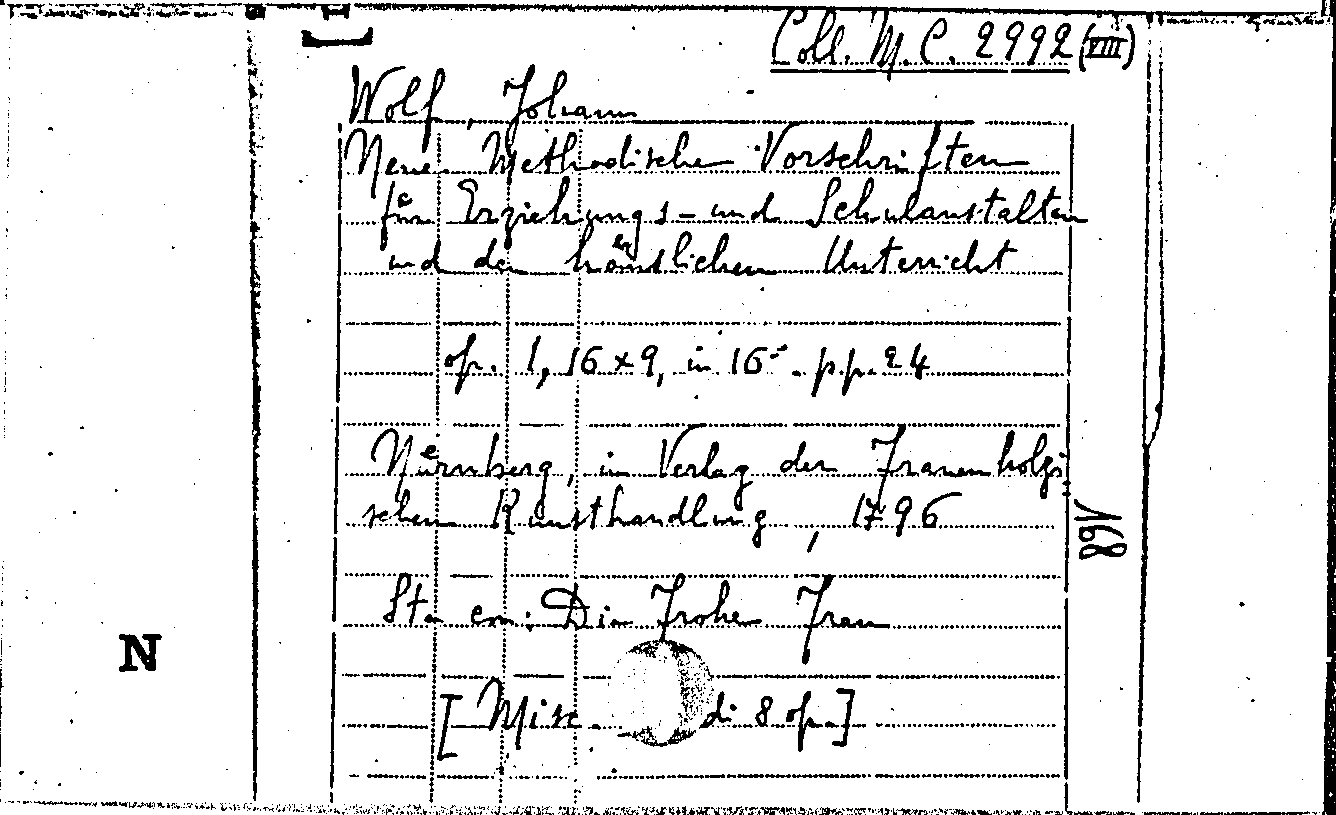 Coll. M. C. 2992 (VIII)
Wolf, Johann
Neue Methodische Vorschriften
für Erziehungs- und Schulanstalten
und den häuslichen Unterricht
op. 1, 16 x 9, in 16° . pp. 24
Nürnberg, im Verlag der Frauenholzi
schen Kunsthandlung, 1796
168
Sta con: Die Frohe Frau
N
[Misc. di 8 op.]